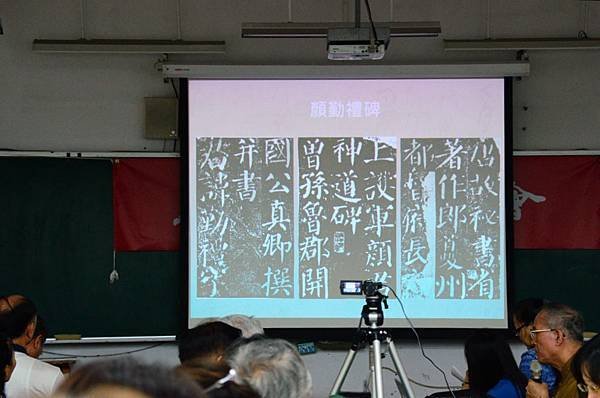 顏勤禮碑
唐故秘書省
著作郎夔州
都督府長
上護軍顏君
神道碑
曾孫魯郡開
國公真卿撰
并書
君諱勤禮字
會